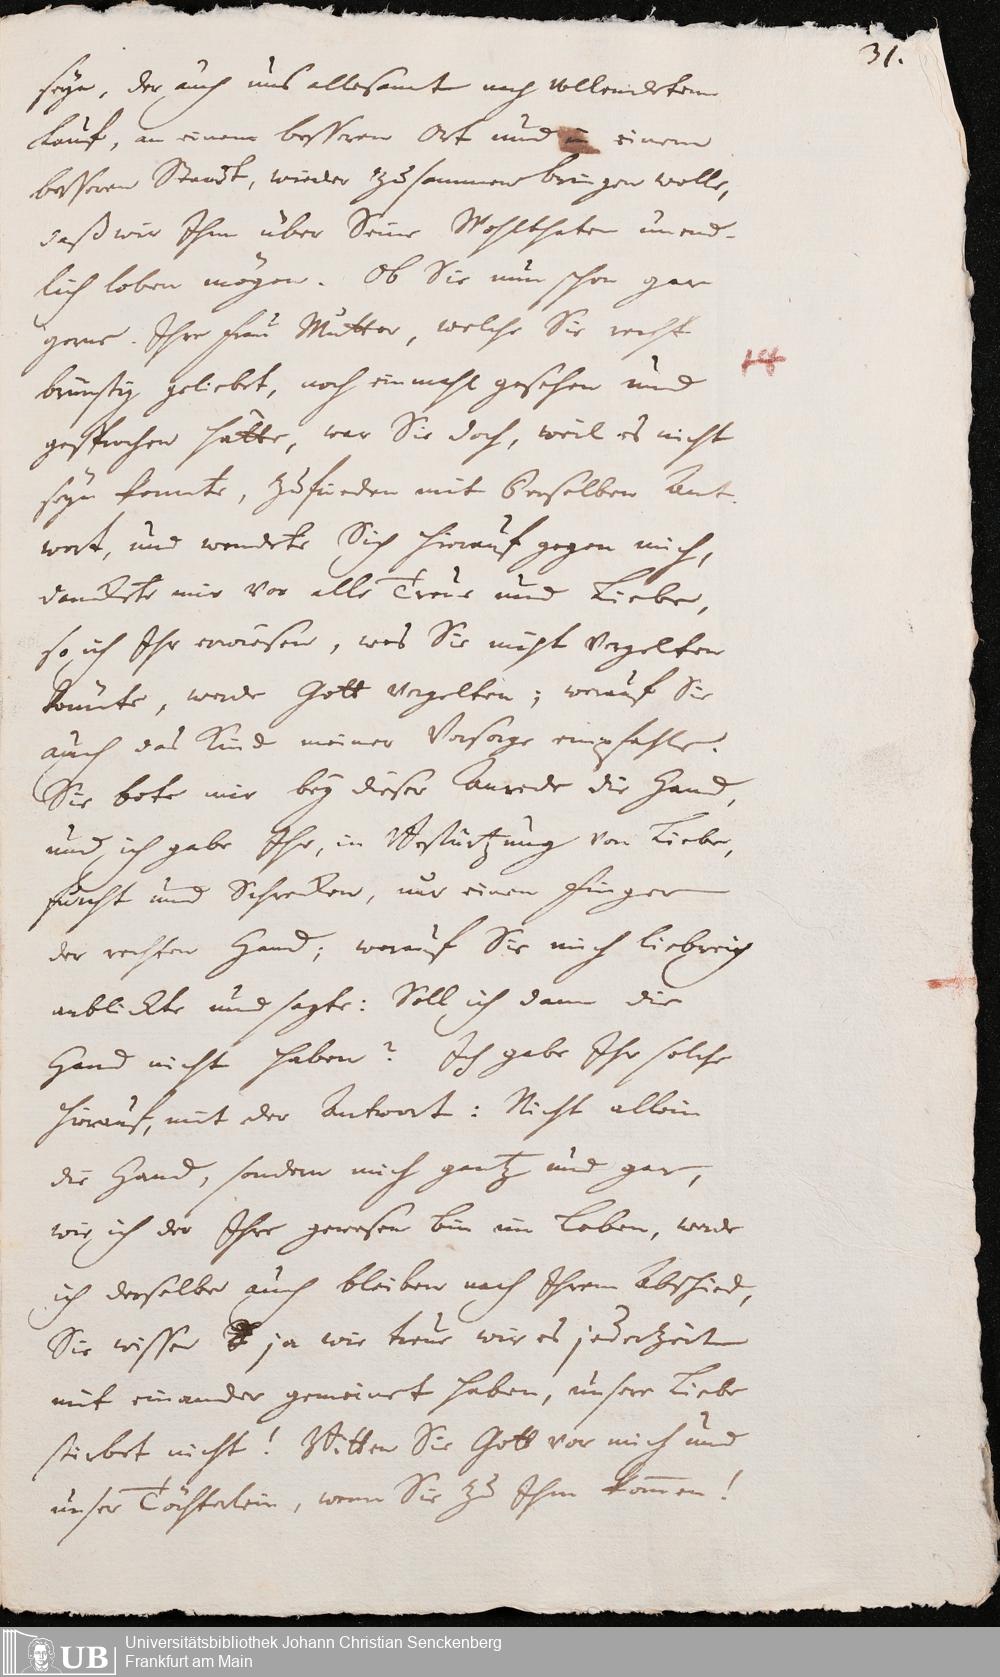 31.
seyn, der auch uns allesamt nach vollendetem
Lauf, an einem besseren Ort und in einem
besseren Stand, wieder zusammen bringen wolle,
daß wir Ihn über Seine Wohlthaten unend-
lich loben mögen. Ob Sie nun schon gar
gerne Ihre Frau Mutter, welche Sie recht
brünstig geliebet, noch einmahl gesehen und
gesprochen hätte, war Sie doch, weil es nicht
seyn konnte, zufrieden mit derselben Ant-
wort, und wendete Sich hierauf gegen mich,
danckte mir vor alle Treue und Liebe,
so ich Ihr erwiesen, was Sie nicht vergelten
könnte, werde Gott vergelten; worauf Sie
auch das Kind meiner Vorsorge empfahle.
Sie bote mir bey dieser Anrede die Hand,
und ich gabe Ihr, in Bestürtzung von Liebe,
Furcht und Schrecken, nur einen Finger
der rechten Hand; worauf Sie mich liebreich
anblickte und sagte: Soll ich dann die
Hand nicht haben? Ich gabe Ihr solche
hierauf, mit der Antwort: Nicht allein
die Hand, sondern mich gantz und gar,
wie ich der Ihre gewesen bin im Leben, werde
ich derselbe auch bleiben nach Ihrem Abschied,
Sie wissen ja wie treue wir es jederzeit
mit einander gemeinet haben, unsere Liebe
stirbet nicht! Bitten Sie Gott vor mich und
unser Töchterlein, wenn Sie zu Ihm kommen!
UB
Universitätsbibliothek Johann Christian Senckenberg
Frankfurt am Main